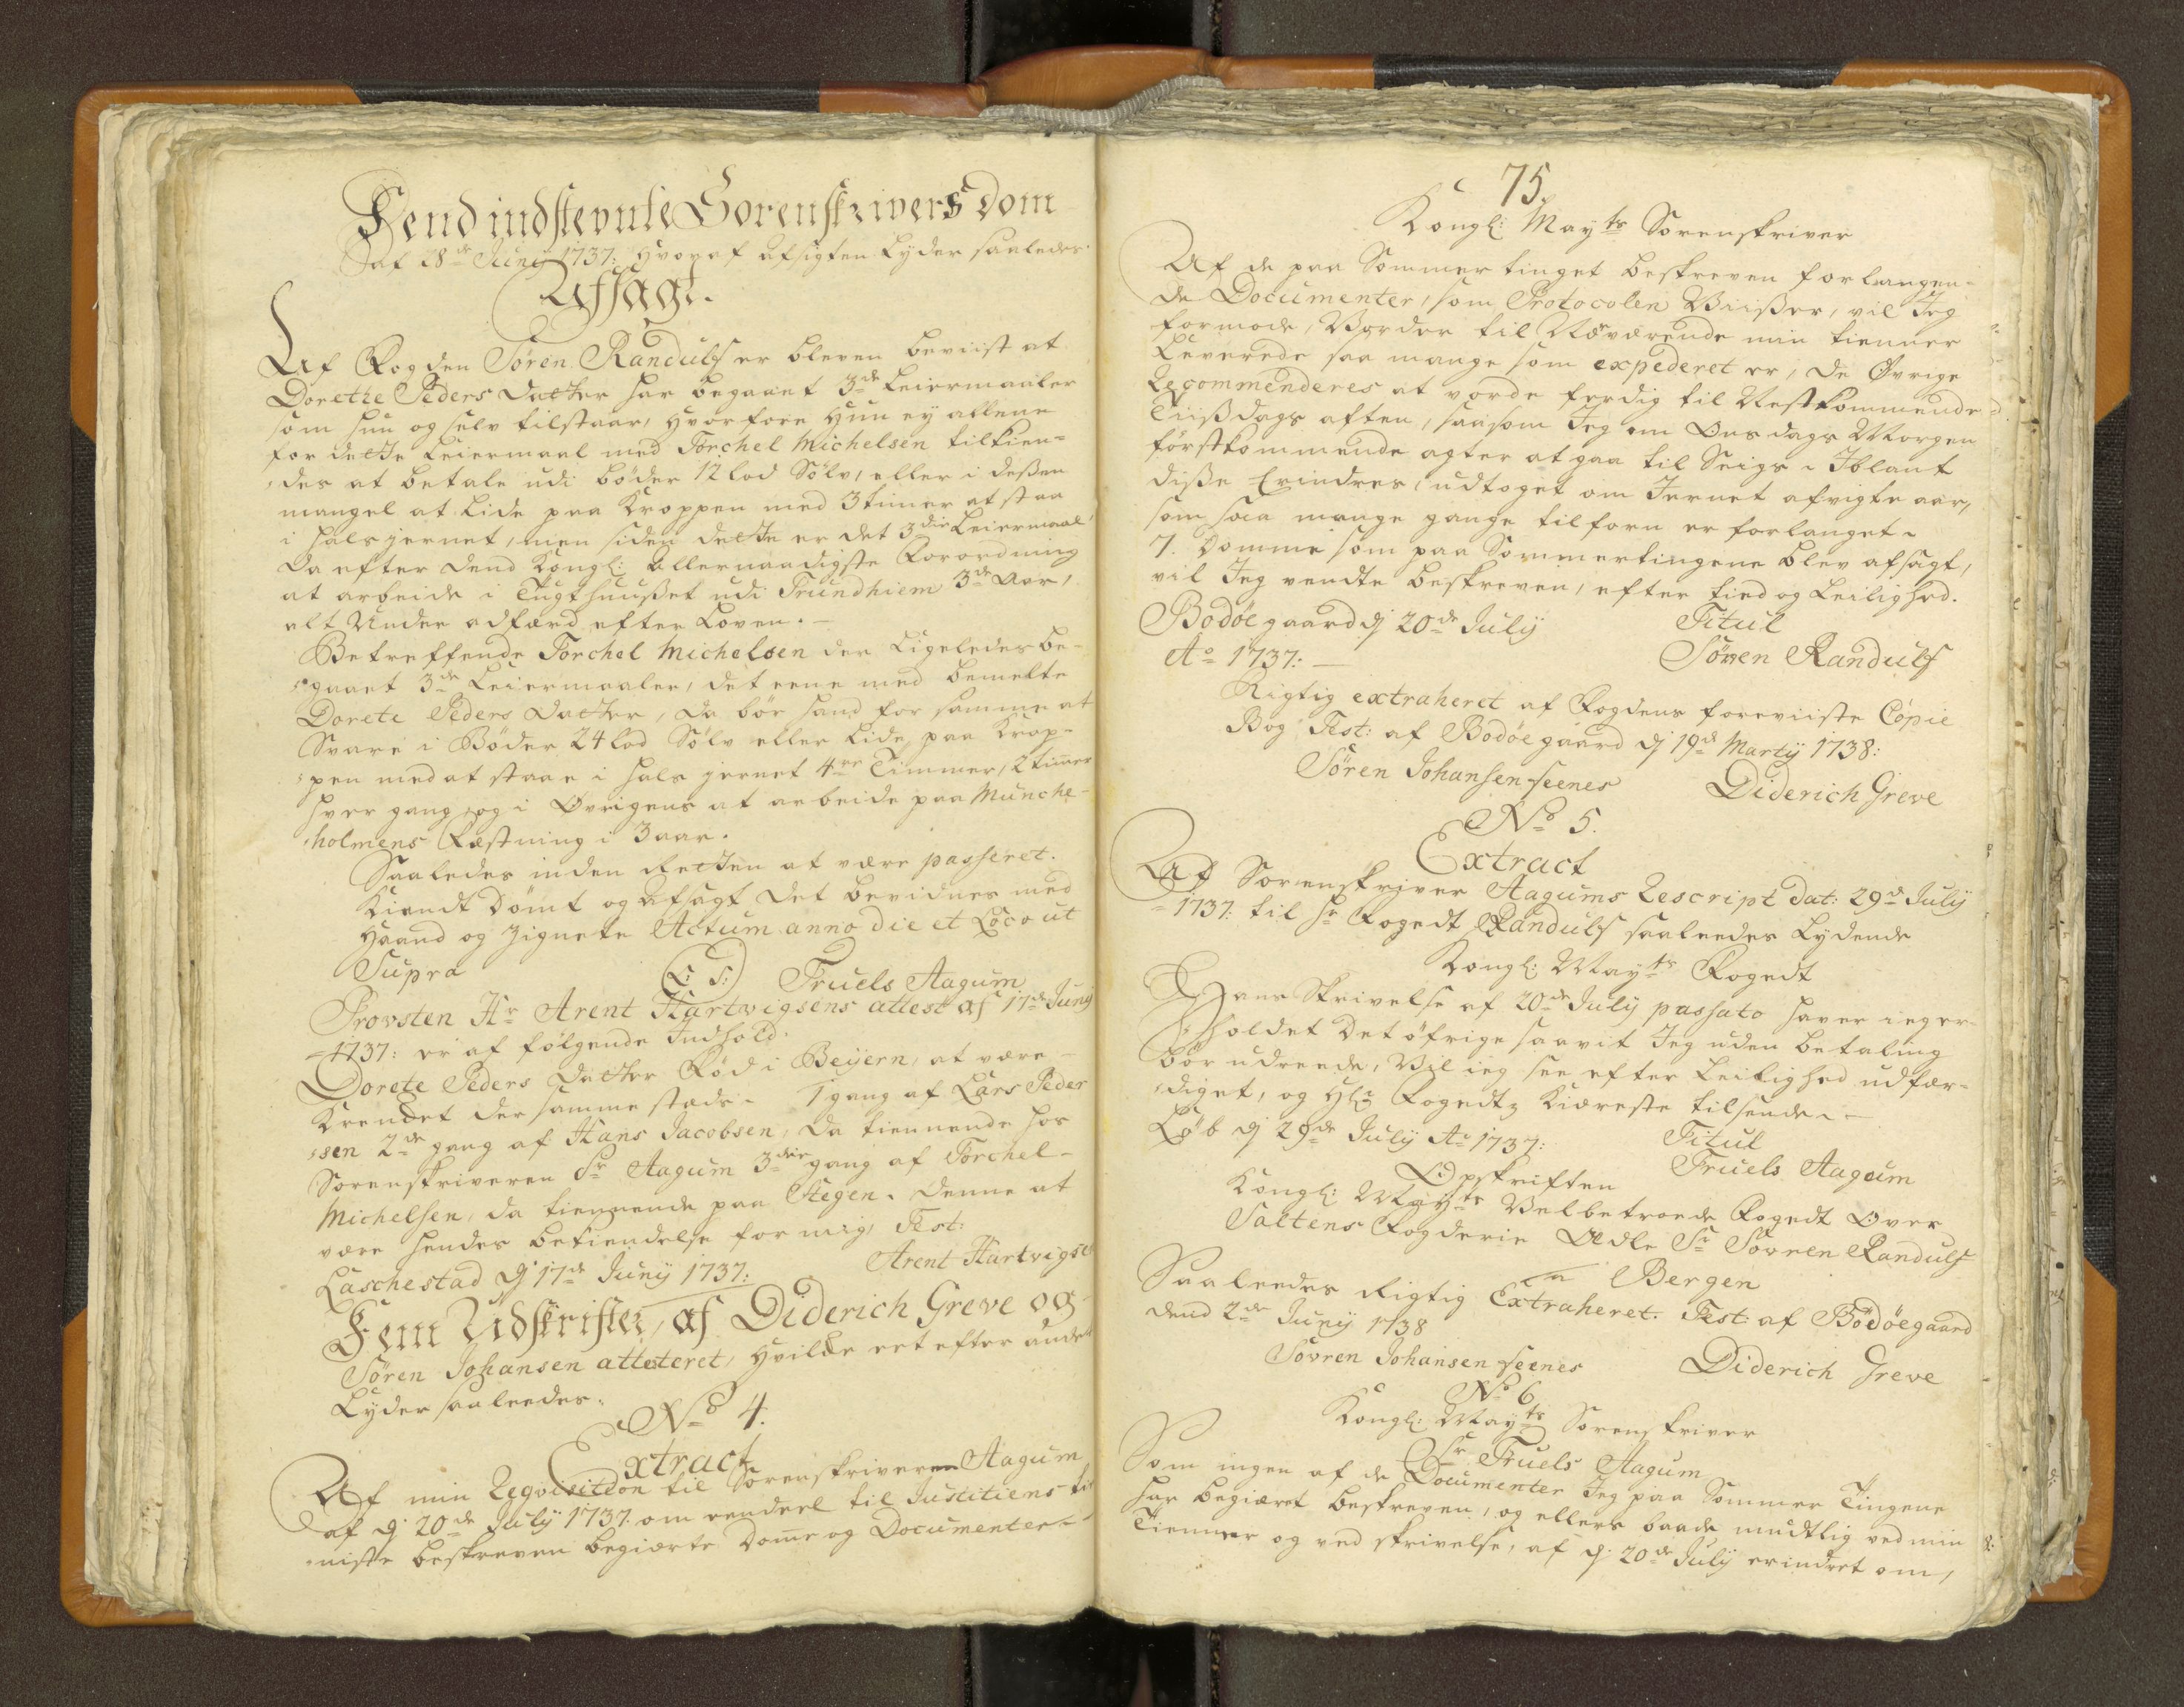 Dend indstevnte Sorenskrivers Dom
Daf 18de Juny 1737: hvoraf afsigten lyder saaledes
Afsagt.
Af Fogden Søren Randulf er bleven beviist at
Dorethe Peders datter har begaaet 3de Leiermaaler
som hun og selv tilstaar, hvorfore hun ey allene
for dette Leiermaal med Torchel Michelsen tilkien-
des at betale udi bøder 12 lod Sølv, eller i deßen
mangel at lide paa Kroppen med 3 timer at staa
i halsjernet, men siden dette er det 3die Leiermaal
da efter dend Kongl: Allernaadigste Forordning
at arbeide i Tugthuußet udi Trundhiem 3de Aar,
alt under adfærd efter Loven.
Betreffende Torchel Michelsen der Ligeledes be-
gaaet 3de Leiermaaler, det eene med bemelte
Dorete Peders datter, da bør hand for samme at
Svare i Bøder 24 lod Sølv eller lide paa Krop-
pen med at staae i hals jernet 4re Timmer, 2 timer
hver gang, og i Øvrigens at arbeide paa Munche-
holmens Fæstning i 3 aar.
Saaledes inden Retten at være passeret.
Kiendt Dømt og Afsagt det bevidner med
Haand og Zignete Actum anno die et Loco ut
Supra (L: S:) Truels Aagum
Provsten Hr Arent Hartvigsens attest af 17de Juny
1737: er af følgende Indhold:
Dorete Peders datter Fød i Beijern, at være
Krencket der sammesteds. 1 gang af Lars Peder
sen 2de gang af Hans Jacobsen, da tiennende hos
Sorenskriveren Sr Aagum 3die gang af Torchel
Michelsen, da tiennende paa Stegen. Denne at
være hendes bekiendelse for mig, Test:
Laschestad dj 17de Juny 1737: Arent Hartvigse
Fem Udskrifter, af Diderich Greve og
Søren Johansen atteteret, hvilcke eet efter andet
Lyder saaleedes:
No 4.
Extract
Af min Reqvisition til Sorenskriveren Aagum
af dj 20de July 1737. om eendeel til Justitiens til
niste beskreven begiærte Dome og Documenter
75.
Kongl: Mayts Sorenskriver
Af de paa Sommertinget beskreven forlangen-
de Documenter, som Protocolen Viißer, vil Jeg
formode, Vorder til Nærværende min tienner
Leverede saa mange som expederet er, de Øvrige
Recommenderes at vorde ferdig til Nestkommende
Tiißdags aften, saasom Jeg om Onsdags Morgen
førstkommende agter at gaa til Seigs. Iblant
diße Erindres, udtoget om Jernet afvigte aar,
som saa mange gange tilforn er forlanget.
7. Domme som paa Sommertingene blev afsagt,
vil Jeg vendte beskreven, efter tiid og Leilighed.
Bodøegaard dj 20de July Titul
Ao 1737: Søvren Randulf
Rigtig extraheret af Fogdens foreviiste Copie
Bog Test: af Bodøegaard dj 19de Marty 1738:
Søren Johansen Seenes Diderich Greve
No 5.
Extract
Af Sorenskriver Aagums Rescript dat: 29de July
1737. til Hr Fogedt Randulf saaleedes Lydende
Kongl: Mayts Fogedt
Hans Skrivelse af 20de July passato haver ieg er-
holdet Det øfrige saavit Jeg uden betaling
bør udreede, Vil ieg see efter Leilighed udfær-
diget, og Hl: Fogedtz kiæreste tilsende.
Løb dj 29de July Ao 1737: Titul
Truels Aagum
Opskriften
Kongl: Mayts Velbetroede Fogedt Over
Saltens Fogderie Ædle Sr Søvren Randulf
Bergen
Saaleedes Rigtig Extraheret. Test: af Bodøegaard
dend 2de Juny 1738
Søvren Johansen Seenes Diderich Greve
No 6
Kongl: Mayts Sorenskriver
Sr Truels Aagum
Som ingen af de Documenter Jeg paa Sommer Tingene
har begiæret beskreven, og ellers baade mundtlig ved min
Tienner og ved skrivelse, af dj 20de July erindret om,